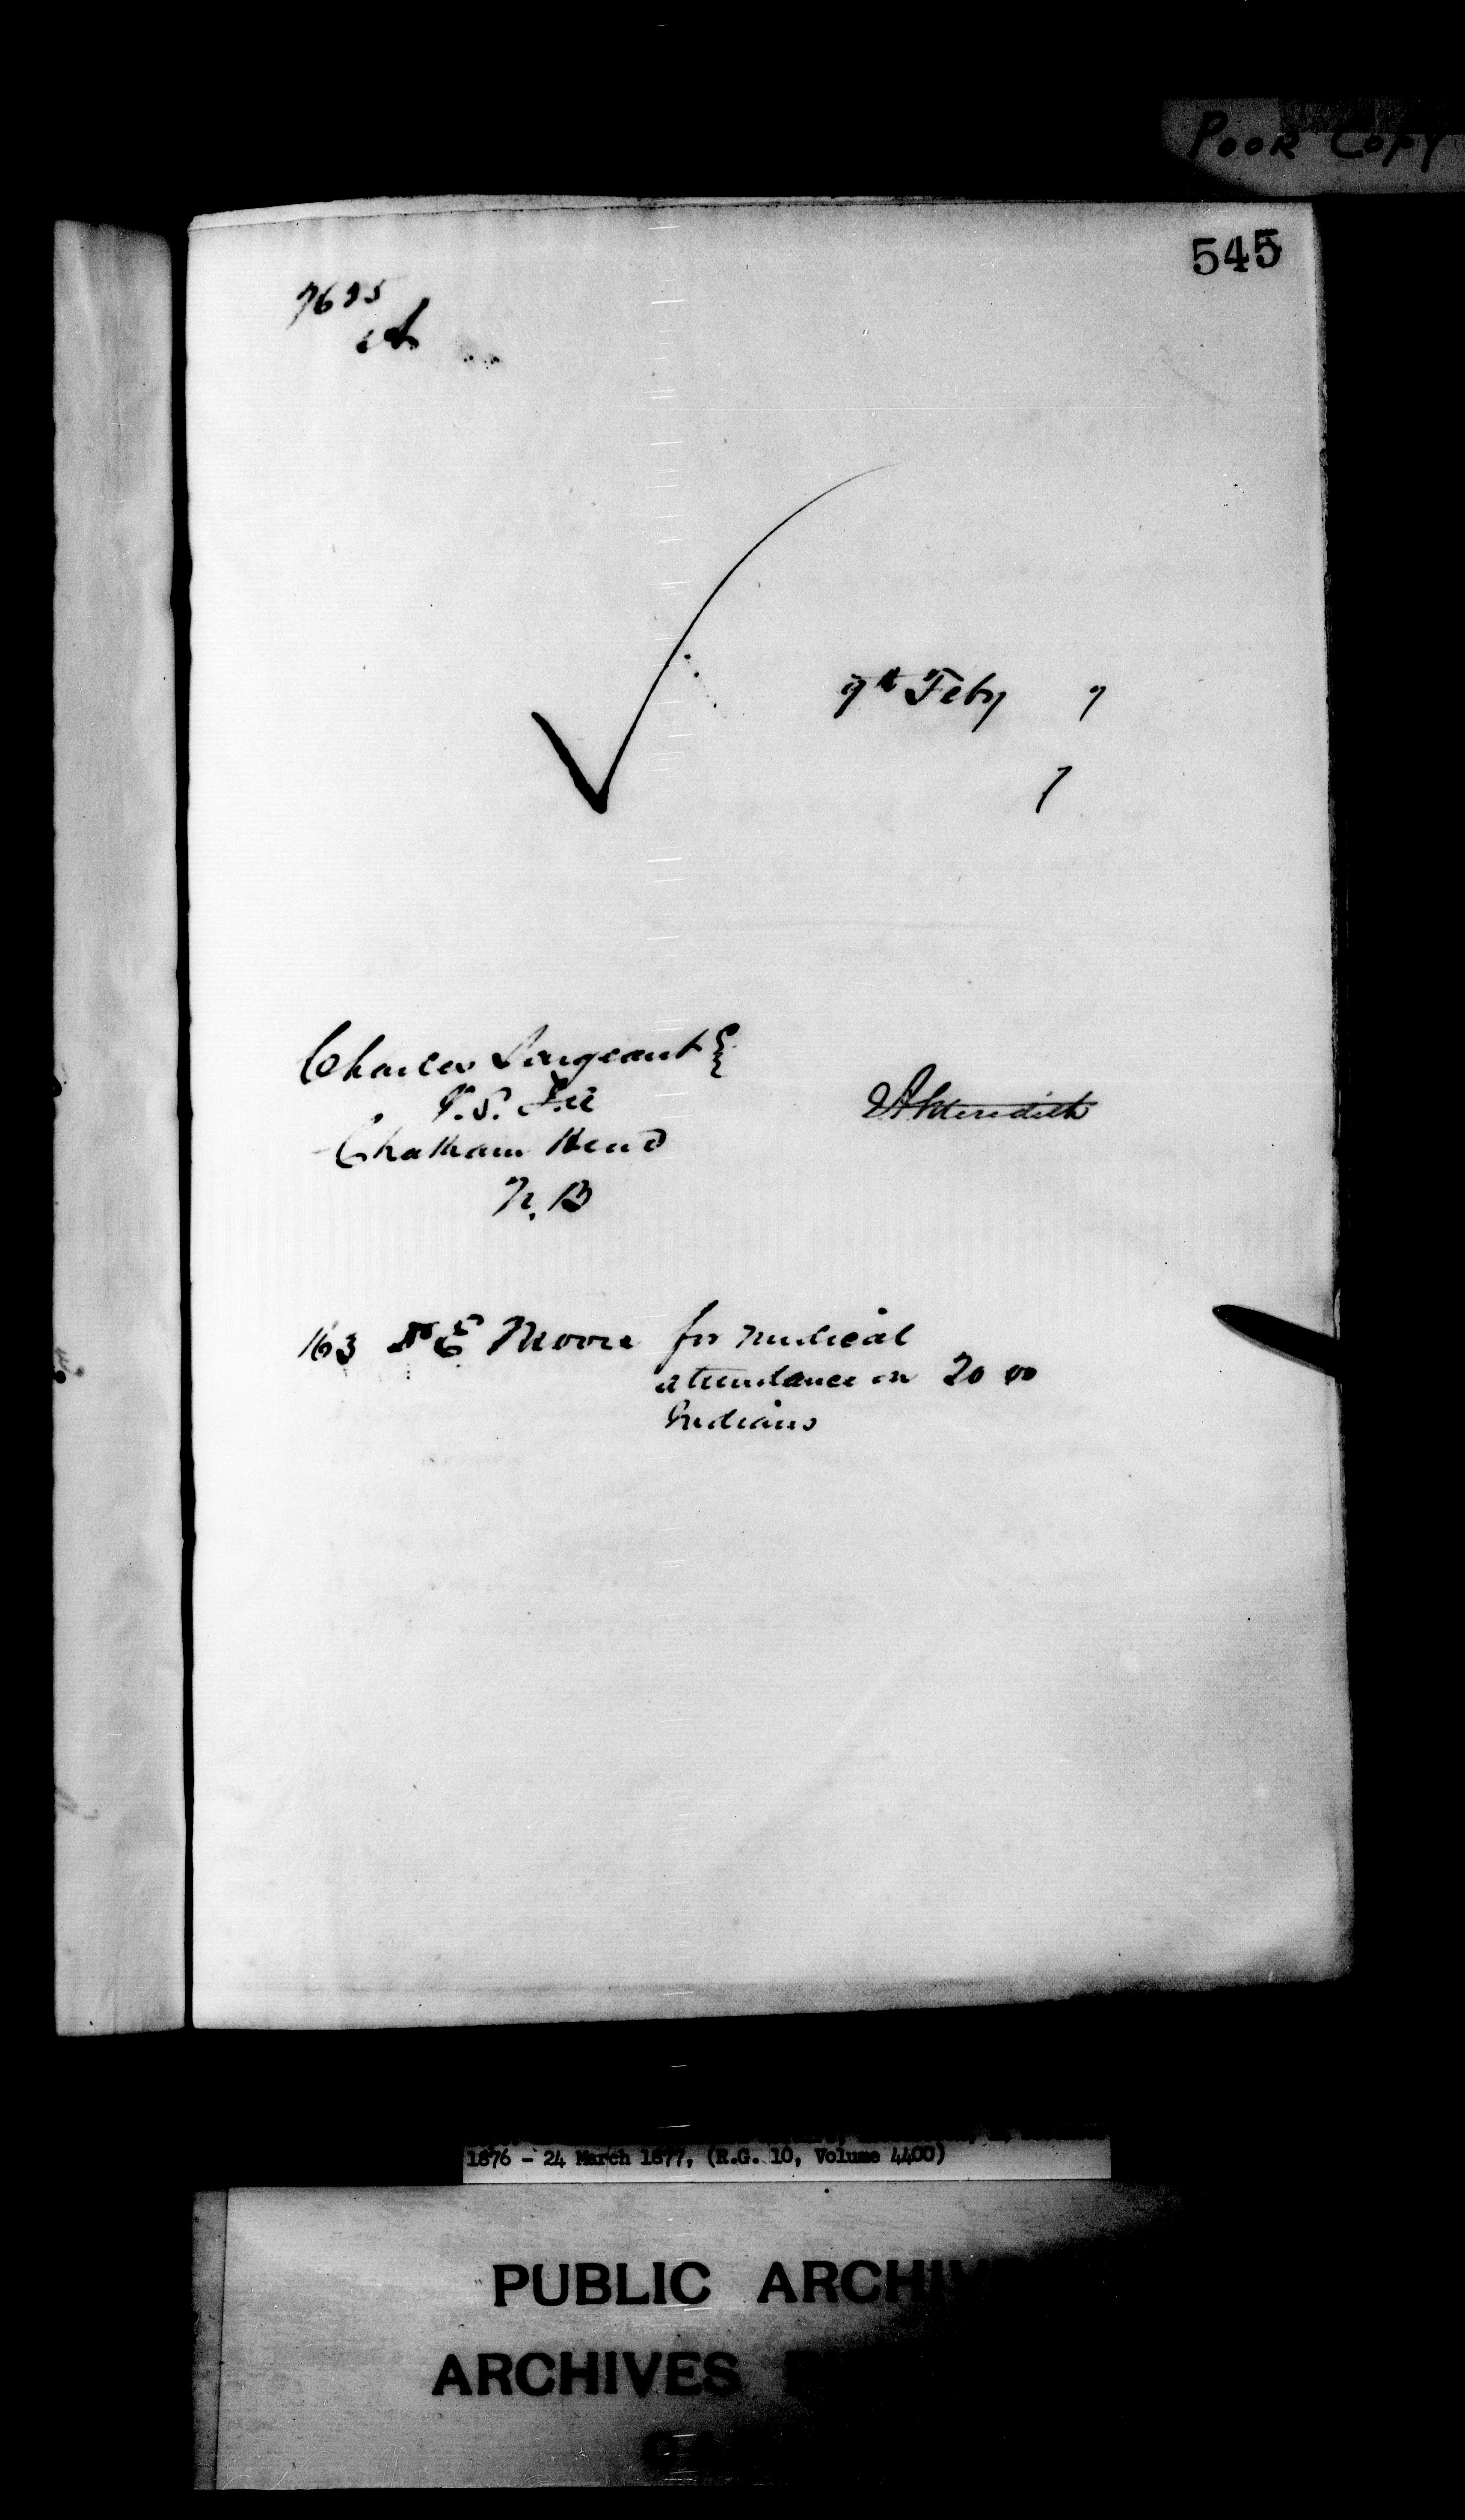 POOR COPY
545
7695
9th Feby 7
7
Charles Sargeant
V.S. Ind
Chatham Head
N.B
Meredith
163 Dr E Moore for medical
attendance on 20 00
Indians
1876 - 24 March 1877, (R.G. 10, Volume 4400)
PUBLIC ARCHIV
ARCHIVES